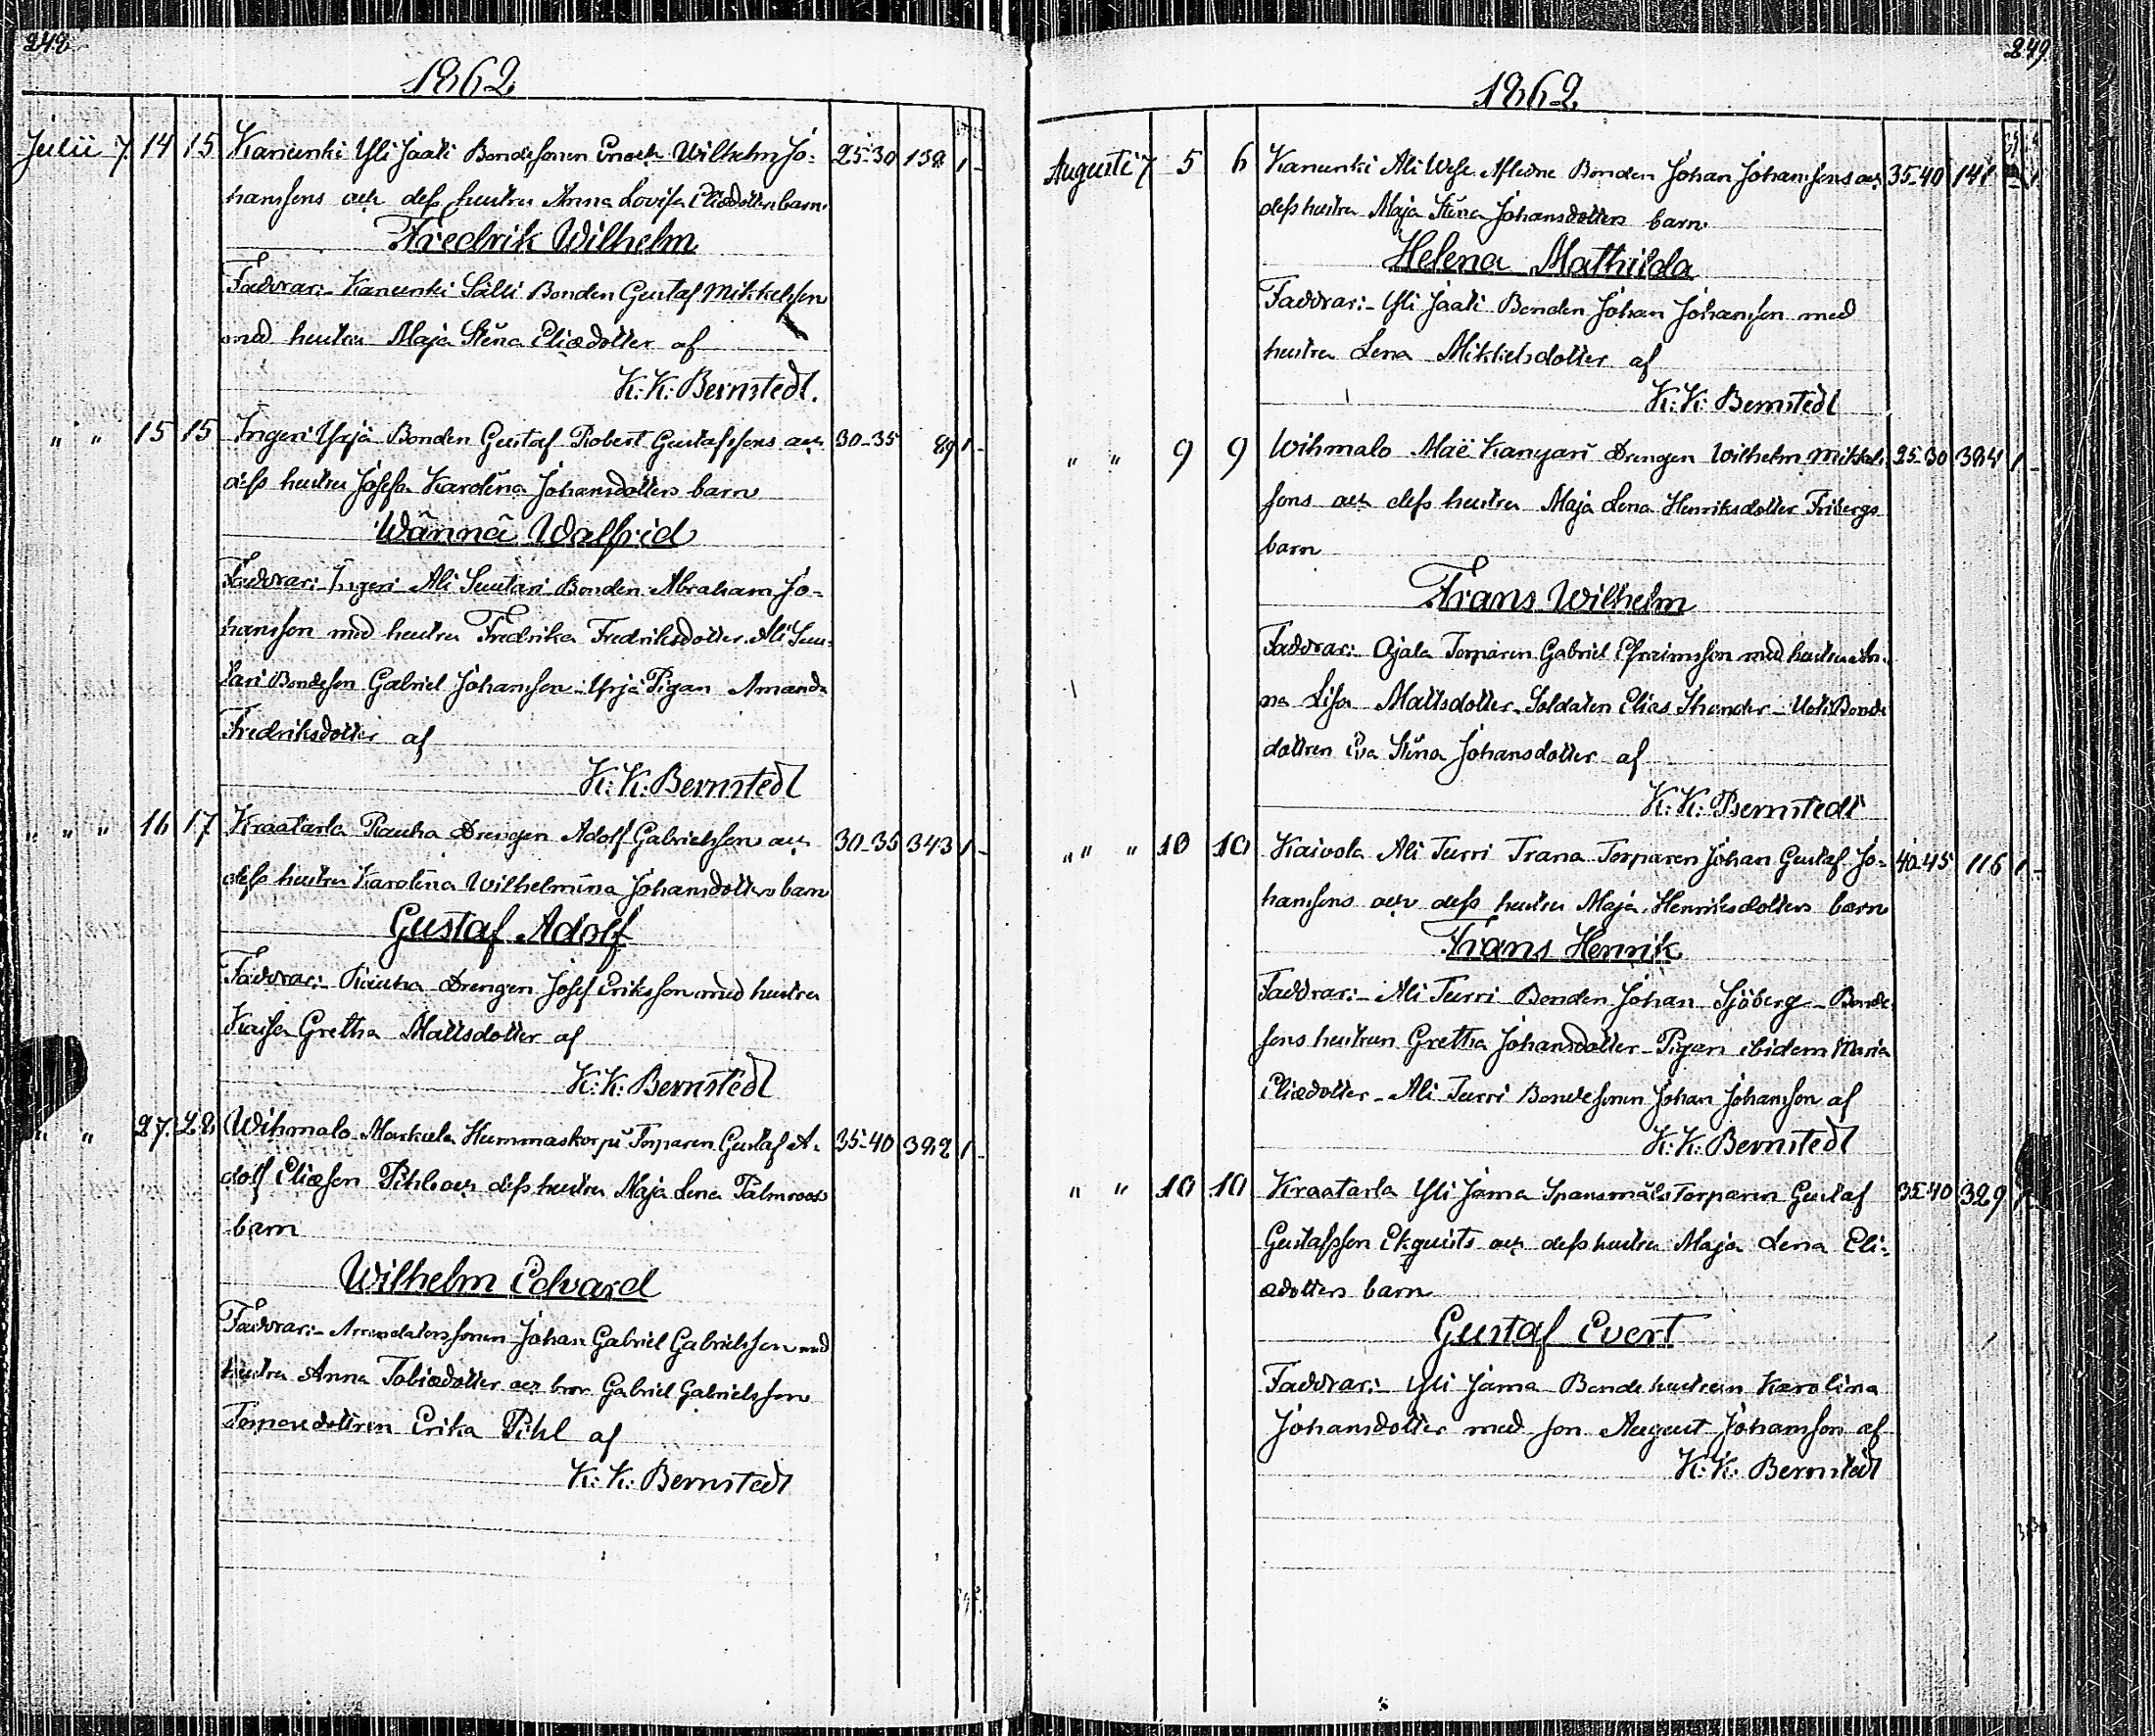 248
1862
Julii 7 14 15 Kanunki Yli Jaali Bondesonen Enoch Wilhelm Jo- 25-30 138 1 -
hanssens och dess hustru Anna Lovisa Eliædotters barn
Fredrik Wilhelm
Faddrar:- Kanunki Sälli Bonden Gustaf Mikkelsson
med hustru Maja Stina Eliædotter af
K: K: Bernstedt.
" " 15 15 Ingeri Yrjä Bonden Gustaf Robert Gustafssons och 30-35 89 1 -
dess hustru Josefa Karolina Johansdotters barn
Wännä Walfrid
Faddrar:- Ingeri Ali Suutari Bonden Abraham Jo-
hansson med hustru Fredrika Fredriksdotter. Ali Suu-
tari Bondeson Gabriel Johansson - Yrjä Pigan Amanda
Fredriksdotter af
K: K: Bernstedt
" " " 16 17 Kraatarla Rauha Drengen Adolf Gabrielsson och 30-35 343 1 -
dess hustru Karolina Wilhelmina Johansdotters barn
Gustaf Adolf
Faddrar:- Rauha Drengen Josef Eriksson med hustru
Kaisa Gretha Mattsdotter af
K: K: Bernstedt
" " 27 28 Wihmalo Markula Hummaskorpi Torparen Gustaf A- 35-40 392 1 -
dolf Eliæson Pihl och dess hustru Maja Lena Palmroos
barn
Wilhelm Edvard
Faddrar:- Arrendatorssonen Johan Gabriel Gabrielsson med
hustru Anna Tobiædotter och bror Gabriel Gabrielsson
Torparedottren Erika Pihl af
K: K: Bernstedt
249.
1862
Augusti 7 5 6 Kanunki Ali Wese Afledne Bonden Johan Johanssons och 35-40 141 1
dess hustru Maja Stina Johansdotters barn
Helena Mathilda
Faddrar:- Yli Jaali Bonden Johan Johansson med
hustru Lena Mikkelsdotter af
K: K: Bernstedt
" " 9 9 Wihmalo Maë Kangari Drengen Wilhelm Mikkels- 25-30 384 1 -
sons och dess hustru Maja Lena Henriksdotter Fribergs
barn
Frans Wilhelm
Faddrar:- Ojala Torparen Gabriel Efraimsson med hustru An-
na Lisa Mattsdotter - Soldaten Elias Thander - Uoti Bonde
dottren Eva Stina Johansdotter af
K: K: Bernstedt
" " " 10 10 Kaivola Ali Turri Trana Torparen Johan Gustaf Jo- 40-45 116 1 -
hanssons och dess hustru Maja Henriksdotters barn
Frans Henrik
Faddrar:- Ali Turri Bonden Johan Sjöberg - Bonde-
sons hustrun Gretha Johansdotter - Pigan ibidem Maria
Eliædotter - Ali Turri Bondesonen Johan Johansson af
K: K: Bernstedt
" " 10 10 Kraatarla Yli Jama Spansmäls Torparen Gustaf 35-40 329 1 -
Gustafsson Ekquists och dess hustru Maja Lena Eli-
ædotters barn
Gustaf Evert
Faddrar:- Yli Jama Bonde hustrun Karolina
Johansdotter med son August Johansson af
K: K: Bernstedt